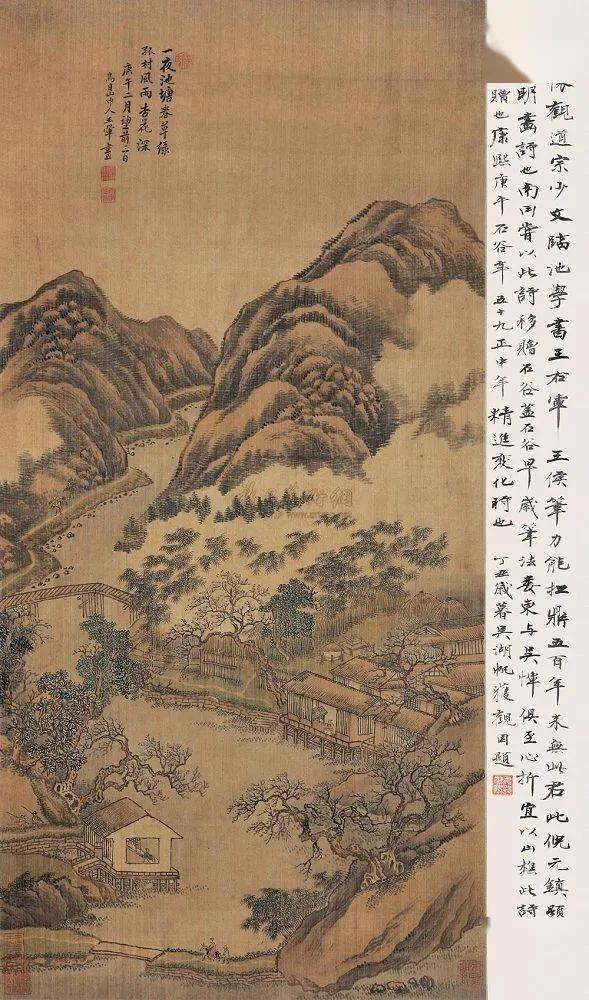 一夜池塘春草綠
孤村風雨杏花深
庚午二月望前三日
烏目山中人王翬畫
觀道宗少文臨池學書王右軍 王侯筆力能扛鼎五百年來無此君此倪元鎮題
明畫詩也南田嘗以此詩移贈石谷蓋石谷早歲筆法婁東与吳惲俱至心折宜以山樵此詩
贈也康熙庚午石谷年五十九正中年精進變化時也 丁丑歲暮吳湖帆獲觀因題